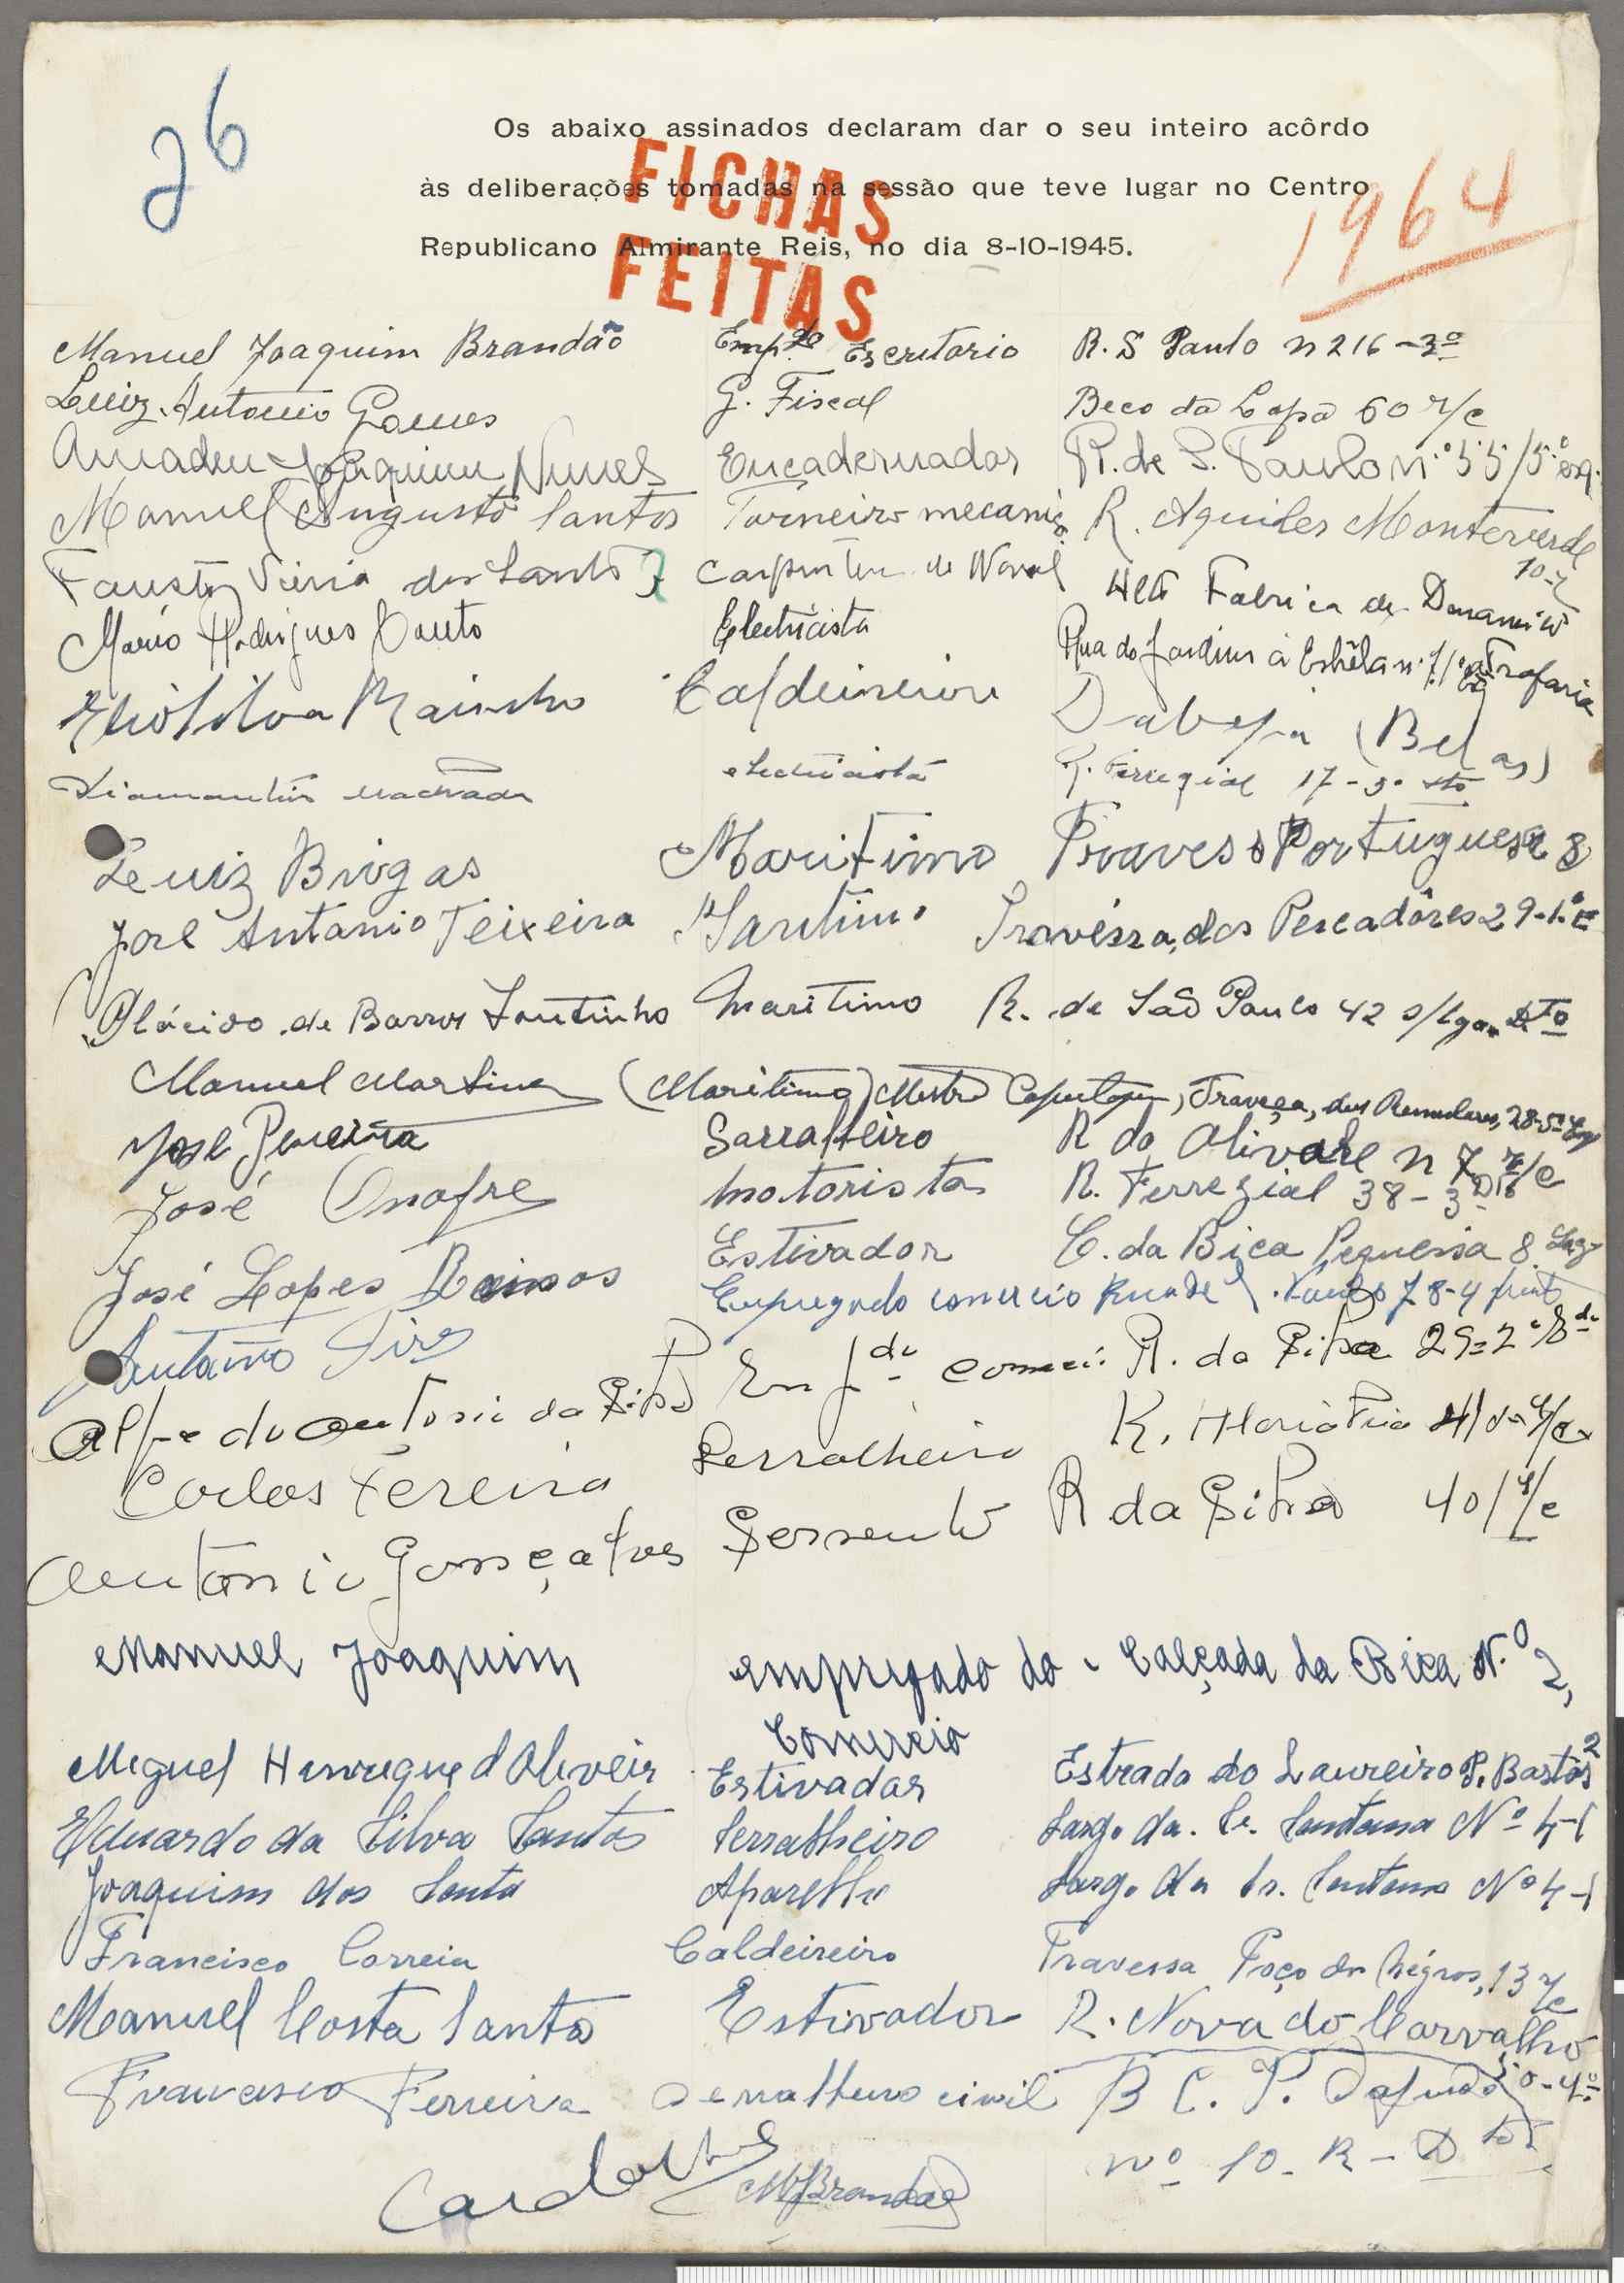 26
Os abaixo assinados declaram dar o seu inteiro acôrdo
às deliberações tomadas na sessão que teve lugar no Centro
Republicano Almirante Reis, no dia 8-10-1945.
FICHAS
FEITAS
1964
Manuel Joaquim Brandão Emp.do Escritorio R. S Paulo n 216-3º
Luiz Antonio Gomes G. Fiscal Beco da Lapa 60 r/c
Amadeu Joaquim Nunes Encadernador R. de S. Paulo n.º 55/5.º esq.
Manuel Augusto Santos Torneiro mecanico R. Aquiles Monteverde
10-r
Fausto Vieira dos Santos Carpinteiro de Naval Fabrica de
Mário Rodrigues Couto Electricista Rua do Jardim á Estrêla n.º Trafaria
Silva Rainho Caldeireiro (Belas)
Diamantino Machado electricista R. Ferregial 17-3º dto
Luiz Brigas Maritimo Portuguesa 8
José Antonio Teixeira Maritimo Travéssa, dos Pescadôres 29-1.º E
Plácido de Barros Soutinho Maritimo R. de São Paulo 42 s/lga Dto
Manuel Martins (Maritimo) Mestre Travessa, dos Remolares, 28-5º
José Pereira Sarralheiro R do Olival n 7 r/c
José Onofre motorista R. Ferregial 38-3 Dto
José Lopes Estivador C. da Bica Pequena 8
Antonio Pires Empregado comercio Rua de S. Paulo 78-4
Alfredo Antonio da Silva Emp do comerci. R. da Silva 29=2º
Carlos Fereira Serralheiro R. Maria Pia
Antonio Gonçalves Servente R da Silva 40 / r/c
Manuel Joaquim empregado do Calçada da Bica N.º 2,
Comercio 2
Miguel Henrique d Oliveir Estivador Estrada do Laureiro P. Bastos
Eduardo da Silva Santos Serralheiro Larg. da. Sr. Santana Nº 4-1
Joaquim dos Santo Larg. da Sr. Santana Nº 4-1
Francisco Correia Caldeireiro Travessa Poço dos Négros, 13 r/c
Manuel Costa Santos Estivador R. Nova do Carvalho
50-4º
Francisco Ferreira Serralheiro civil B C. P. Dafundo
nº 10- R-D to
MJBrandão